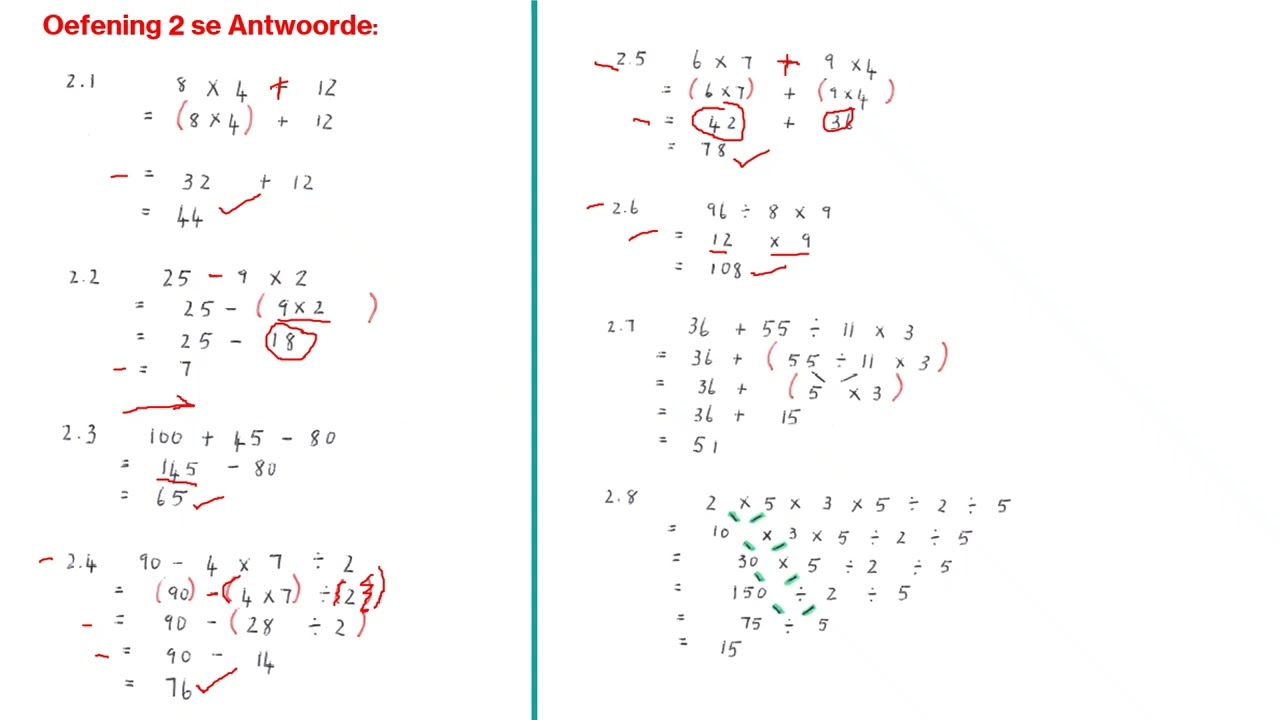 Oefening 2 se Antwoorde:
2.1 8 × 4 + 12
= (8 × 4) + 12
= 32 + 12
= 44
2.2 25 - 9 × 2
= 25 - (9 × 2)
= 25 - 18
= 7
2.3 100 + 45 - 80
= 145 - 80
= 65
2.4 90 - 4 × 7 ÷ 2
= (90) - (4 × 7) ÷ (2)
= 90 - (28 ÷ 2)
= 90 - 14
= 76
2.5 6 × 7 + 9 × 4
= (6 × 7) + (9 × 4)
= 42 + 36
= 78
2.6 96 ÷ 8 × 9
= 12 × 9
= 108
2.7 36 + 55 ÷ 11 × 3
= 36 + (55 ÷ 11 × 3)
= 36 + (5 × 3)
= 36 + 15
= 51
2.8 2 × 5 × 3 × 5 ÷ 2 ÷ 5
= 10 × 3 × 5 ÷ 2 ÷ 5
= 30 × 5 ÷ 2 ÷ 5
= 150 ÷ 2 ÷ 5
= 75 ÷ 5
= 15